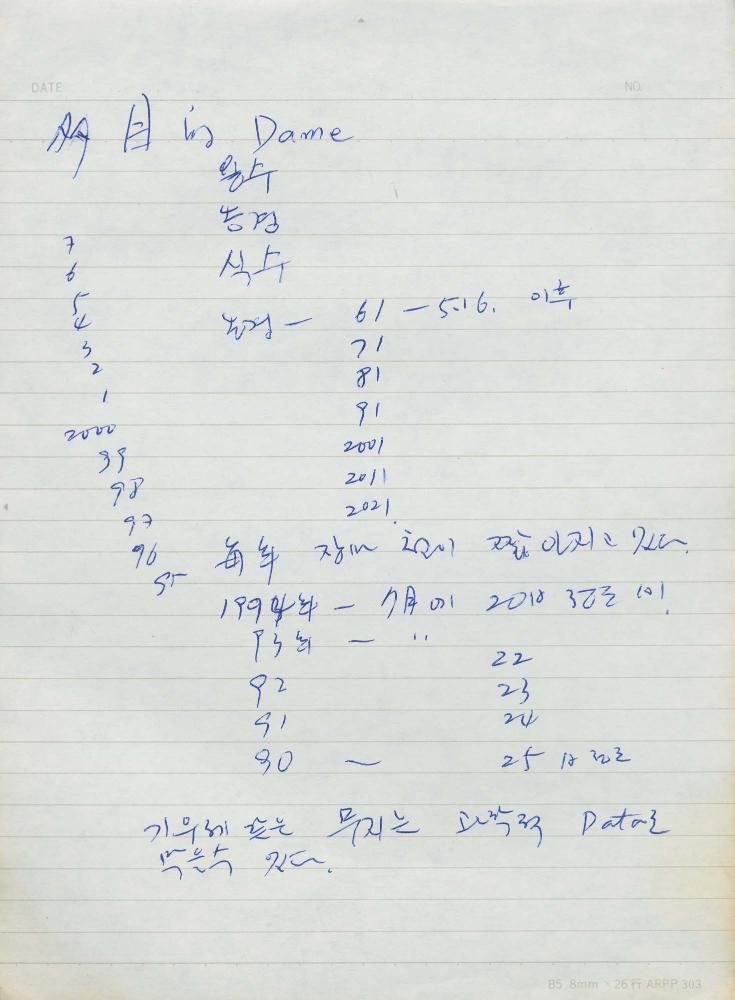 DATE
NO.
多目的 Dame
용수
농경
7
6 식수
5
4 농경 — 61 — 5.16. 이후
3 71
2 81
1 91
2000 2001
99 2011
98 2021
97
96 每年 장마 짧아지고 있다.
95
1994年 — 7月에 20日 정도 비
93年 — 〃 22
92 23
91 24
90 — 25日 정도
기우제 같은 무지는 과학적 Data로
막을수 있다.
B5 8mm × 26行 ARPP 303